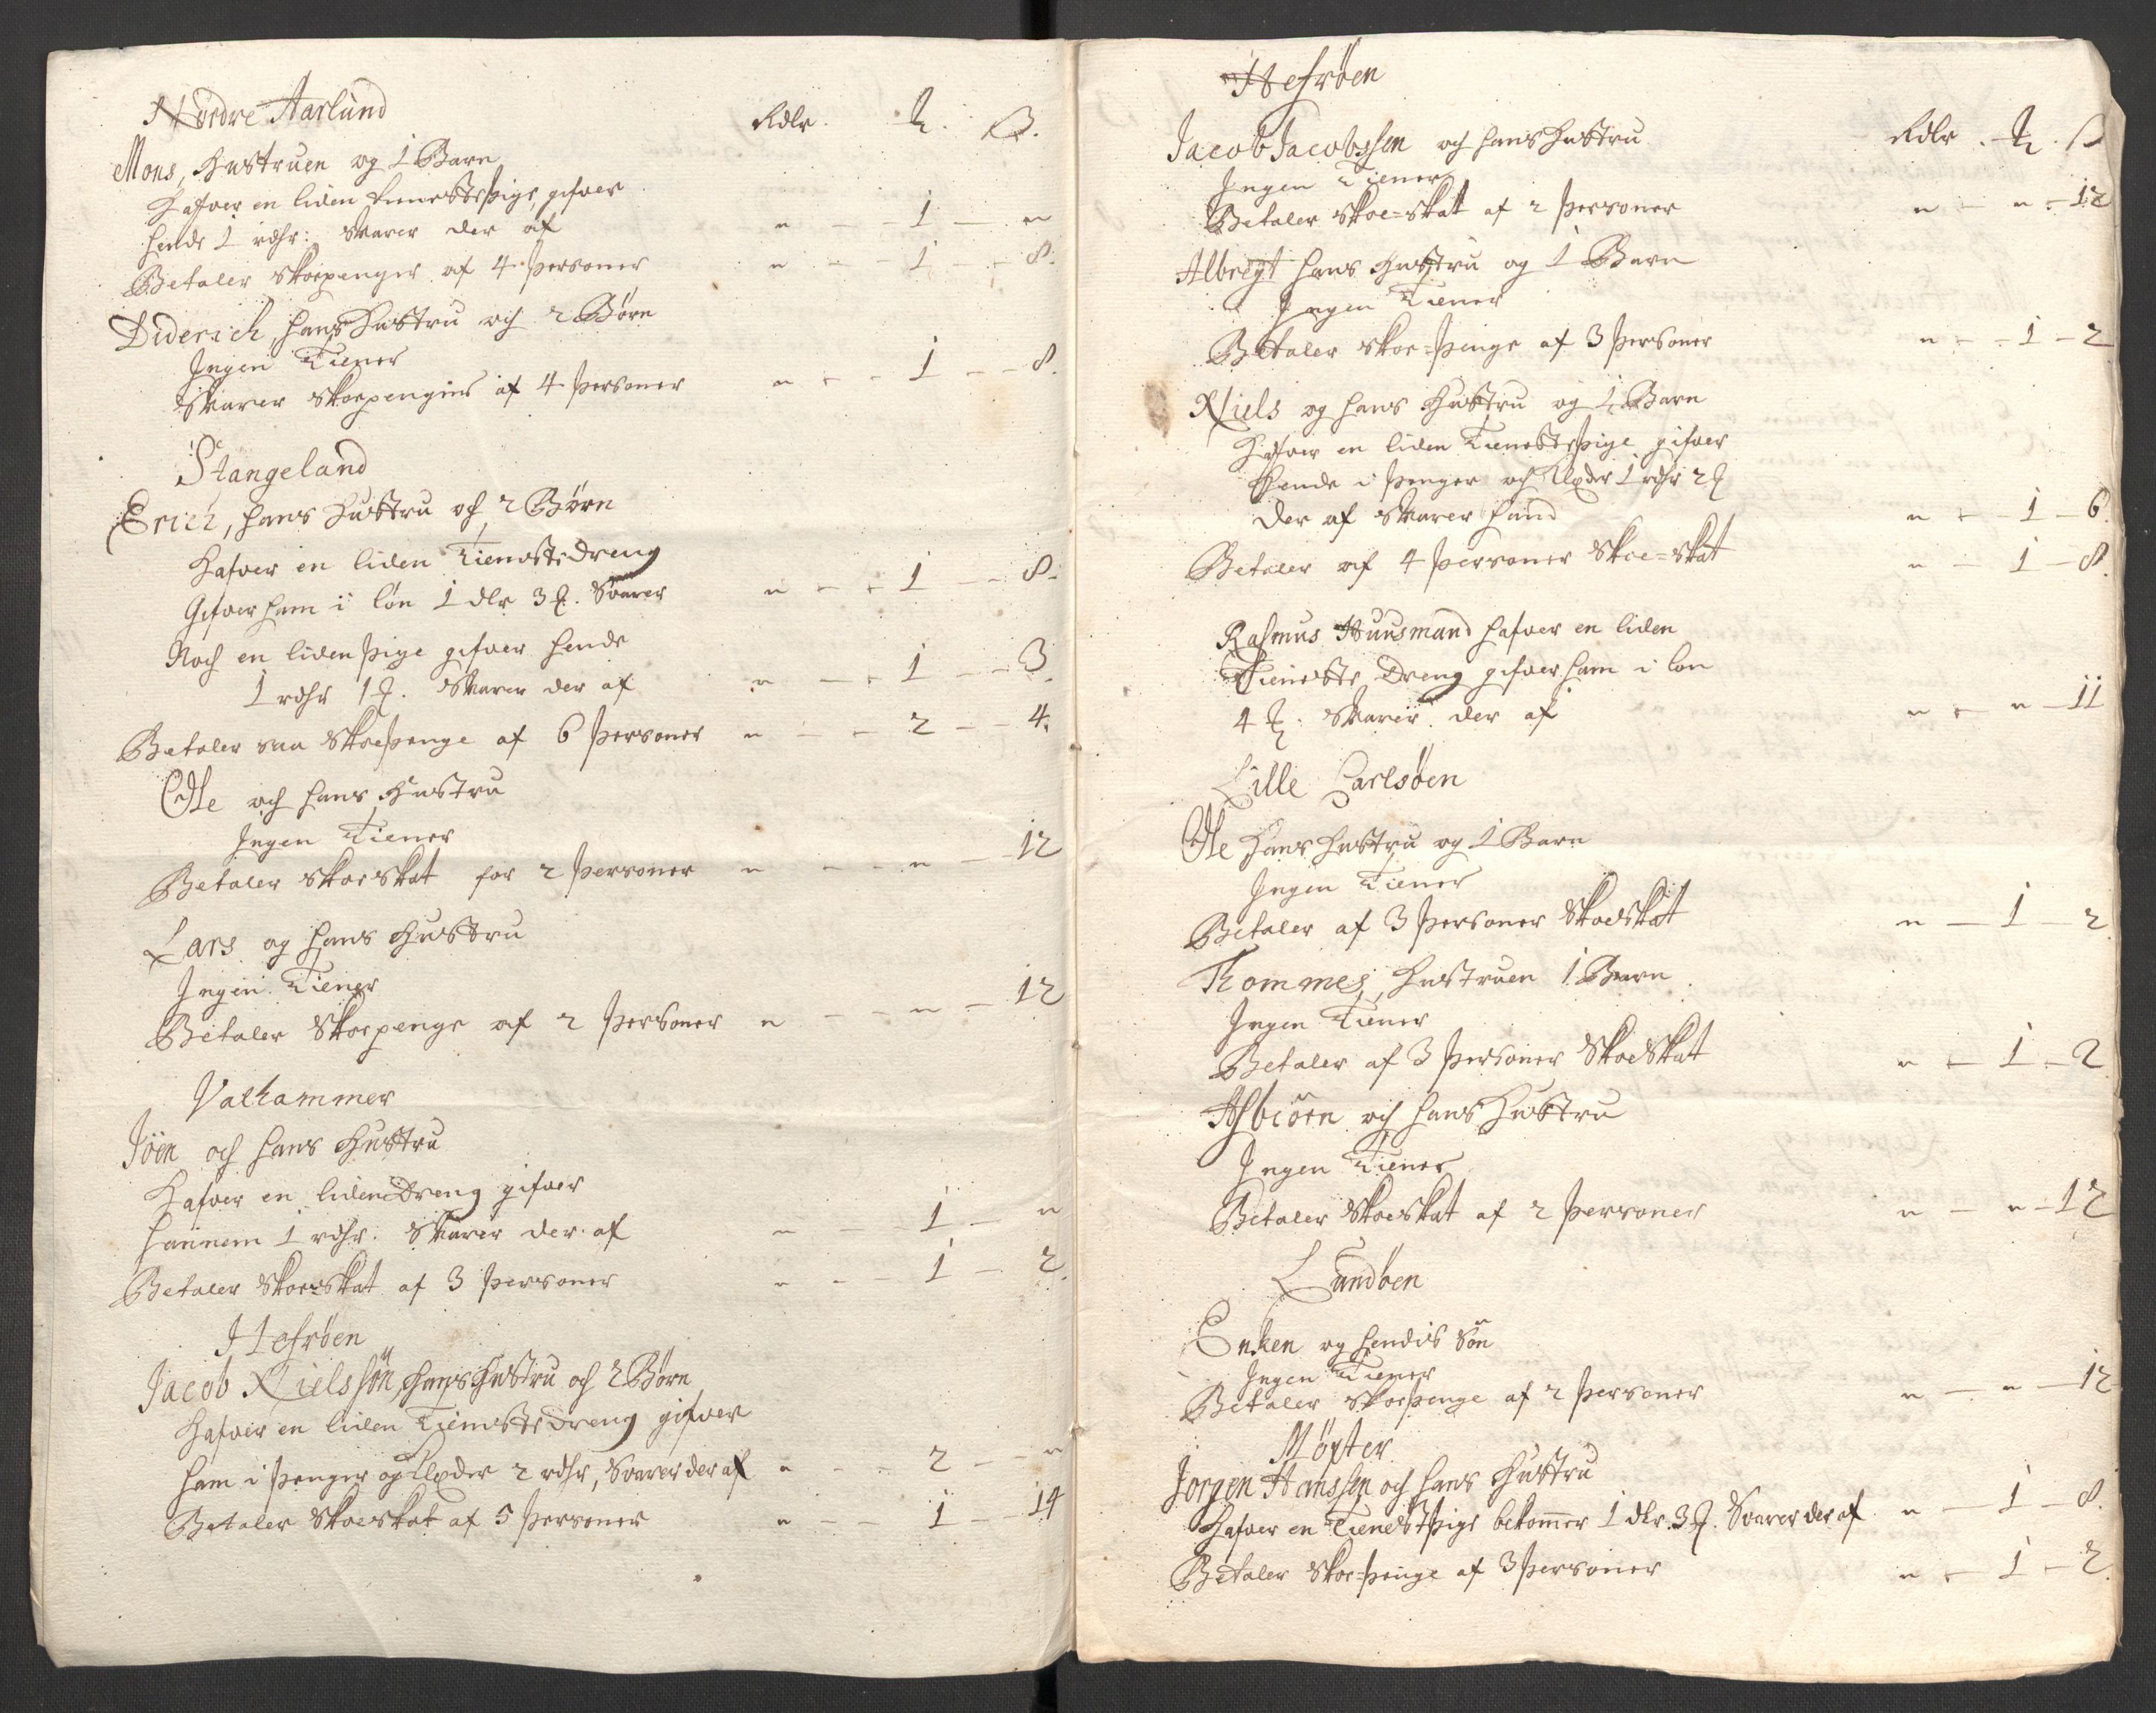 Nordre Aarland
Rdlr. ꝶ. ß.
Mons, Hustruen og 1 Barn
Hafver en liden tienestepige, gifver
hende 1 rdlr: Svarer der af " — 1 — "
Betaler skoepenger af 4 personer " — 1 — 8.
Diderich, hans Hustru och 2 Børn
Ingen Tiener
Svarer skoepenginr af 4 personer " — 1 — 8.
Stangeland
Erich, hans Hustru och 2 Børn
Hafver en liden Tienistedreng
Gifver ham i løn 1 dlr 3 ꝶ. Svarer " — 1 — 8.
Noch en liden pige gifver hende
1 rdlr 1 ꝶ. Svarer der af " — 1 — 3.
Betaler saa skoepenge af 6 personer " — 2 — 4.
Olle och hans Hustru
Ingen Tiener
Betaler skoeskat for 2 personer " — " — 12
Lars og hans Hustru
Ingen Tiener
Betaler skoepenge af 2 personer " — " — 12
Valhammer
Jöen och hans Hustru
Hafver en liden Dreng gifver
hannem 1 rdlr. Svarer der af " — 1 — "
Betaler skoeskat af 3 personer " — 1 — 2.
Hefröen
Jacob Nielssön, hans Hustru och 2 Børn
Hafver en liden Tienistedreng gifver
ham i penger og Klæder 2 rdlr, Svarer der af " — 2 — "
Betaler skoeskat af 5 personer " — 1 — 14
Hefröen
Rdlr. ꝶ. ß
Jacob Jacobssen och hans Hustru
Ingen Tiener
Betaler skoe-skat af 2 personer " — " — 12
Albregt hans Hustru og 1 Barn
Ingen Tiener
Betaler skoe-penge af 3 personer " — 1 — 2
Niels og hans Hustru og 1 Barn
Hafver en liden Tienestepige gifver
hende i penger och Klæder 1 rdlr 2 ꝶ
der af Svarer hand " — 1 — 6.
Betaler af 4 personer skoe-skat " — 1 — 8.
Rasmus Huusmand hafver en liden
Tieniste Dreng gifver ham i lon
4 ꝶ. Svarer der af " — " — 11
Lille Carlsöen
Olle Hans Hustru og 1 Barn
Ingen Tiener
Betaler af 3 personer skoeskat " — 1 — 2
Thommes, Hustruen 1 Barn
Ingen Tiener
Betaler af 3 personer skoeskat " — 1 — 2
Asbiörn och hans Hustru
Ingen Tiener
Betaler skoeskat af 2 personer " — " — 12
Lundöen
Enken og hendis Sön
Ingen Tiener
Betaler skoepenge af 2 personer " — " — 12
Möxter
Jorgen Hanssen och hans Hustru
Hafver en Tienestpige bekommer 1 dlr. 3 ꝶ. Svarer der af " — 1 — 8.
Betaler skoe-penge af 3 personer " — 1 — 2.